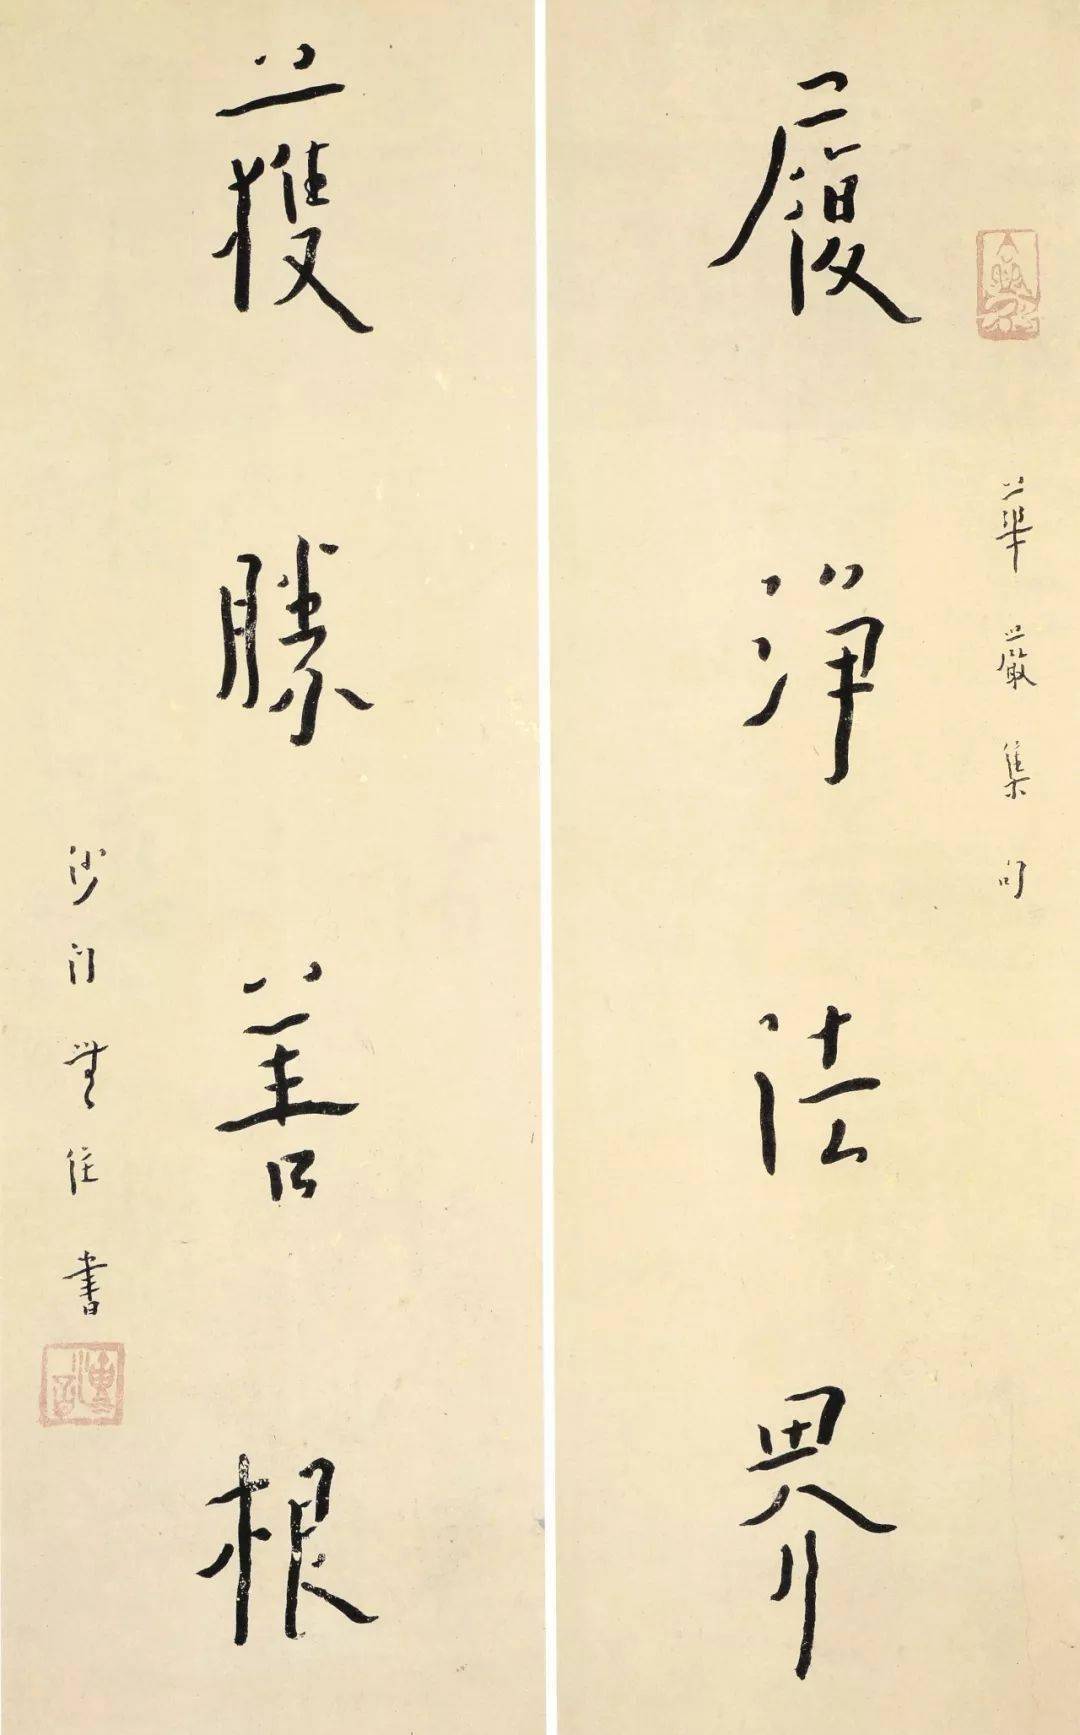 華嚴集句
履淨法界
獲勝善根
沙門無住書